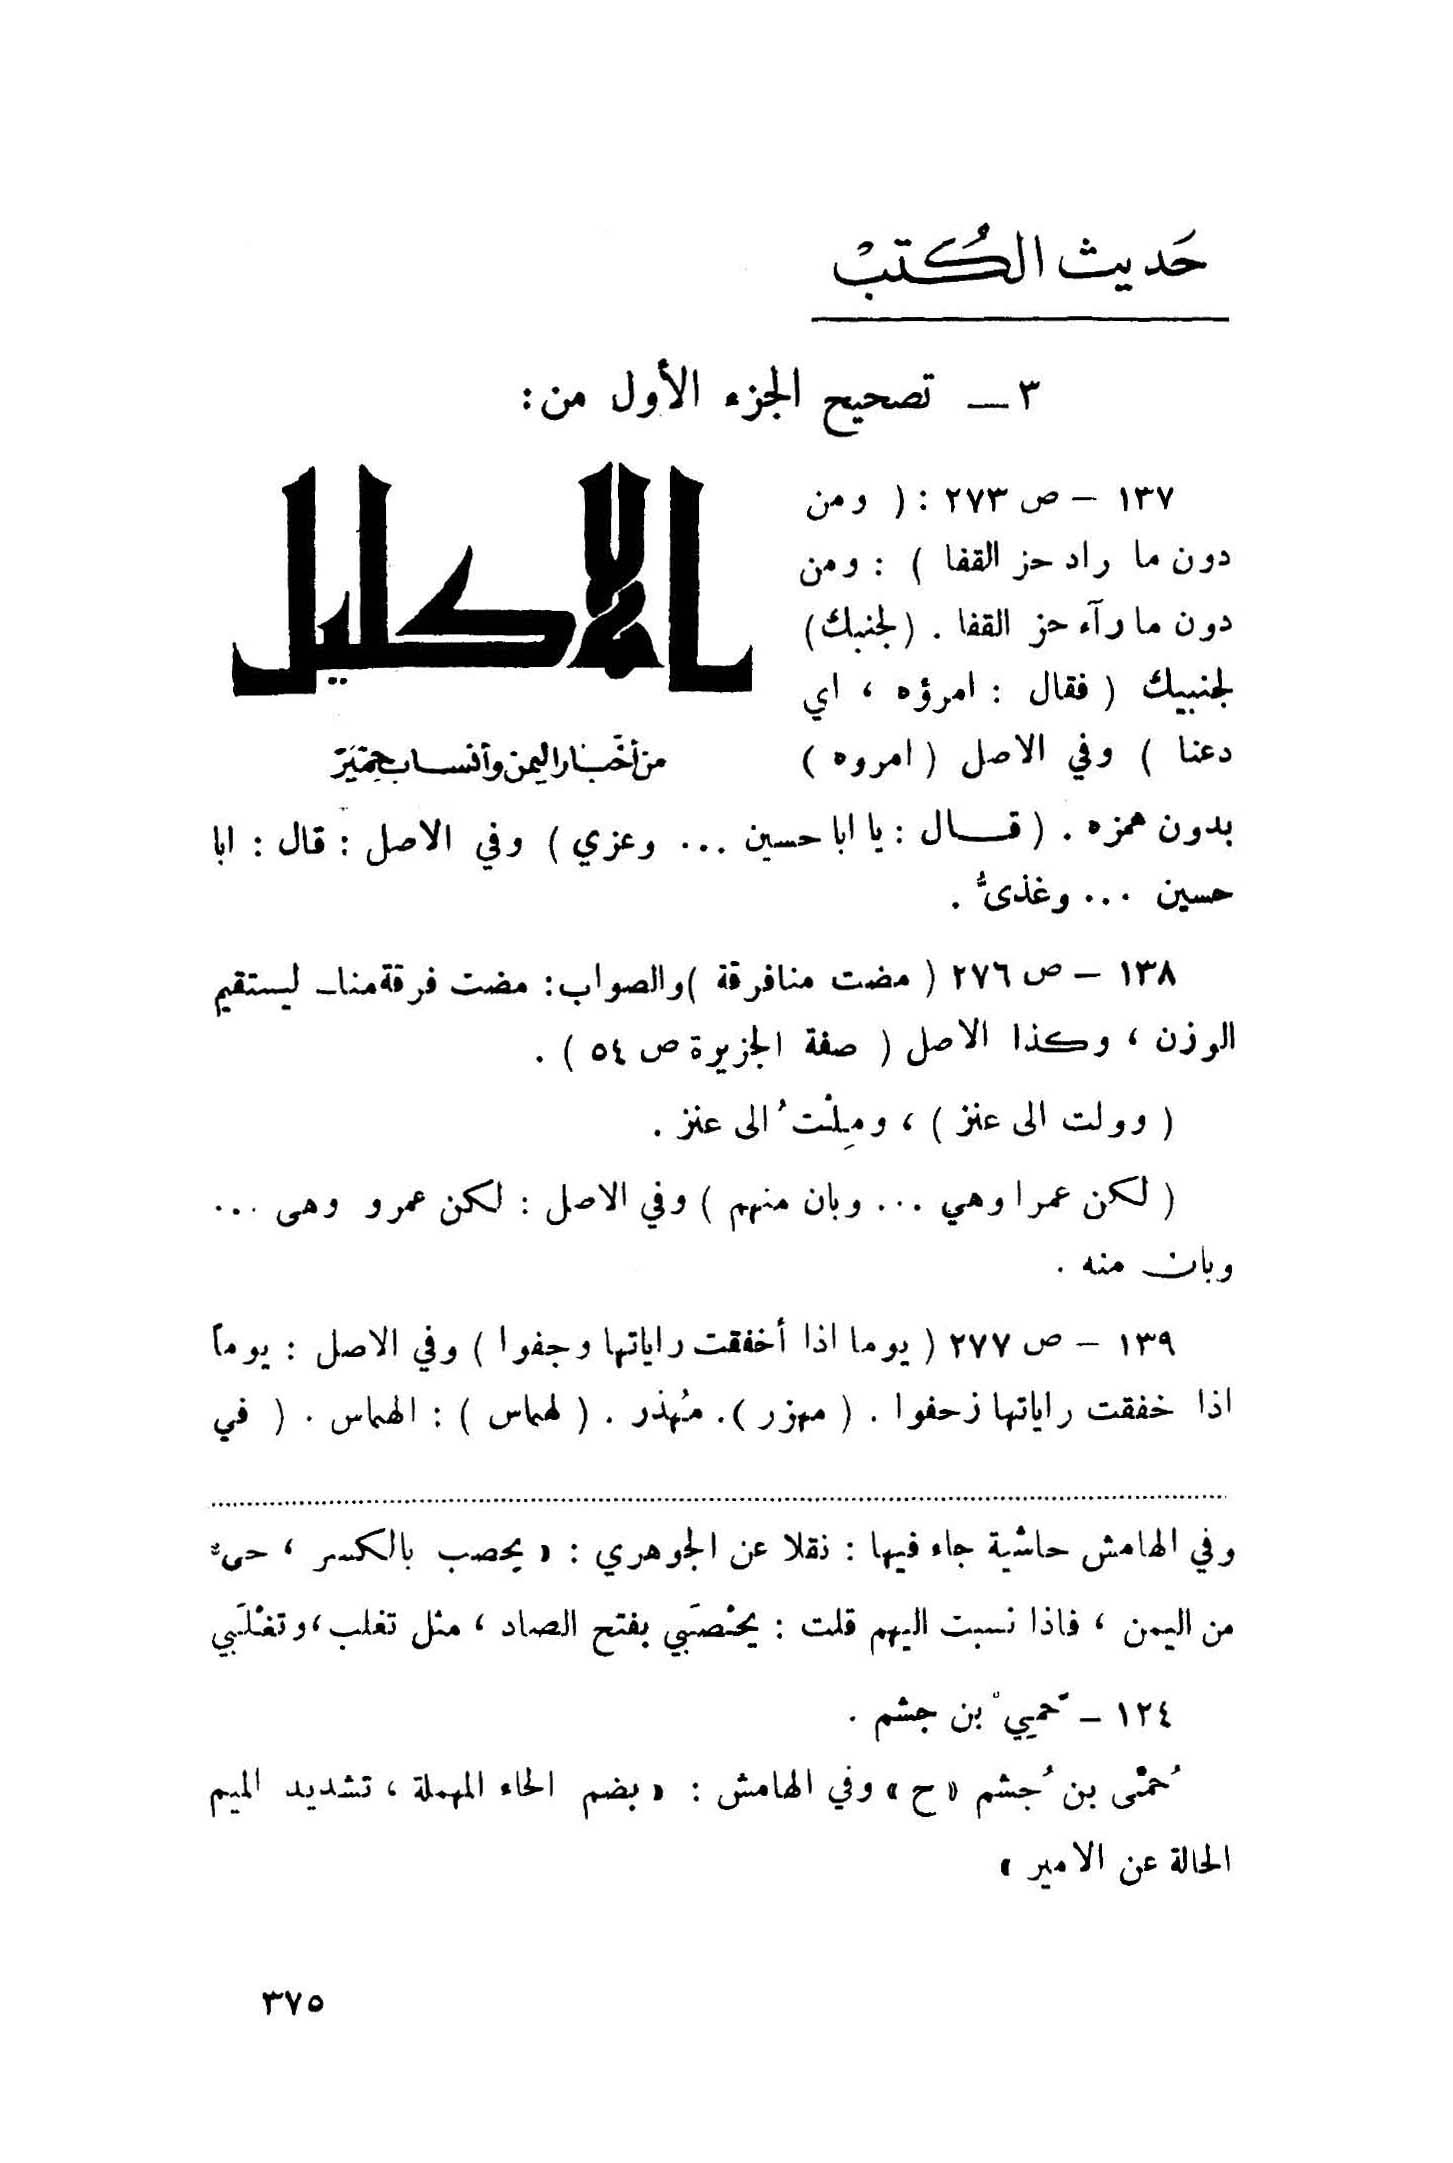 حَديث الكُتبْ
٣ ـ تصحيح الجزء الأول من :
الاكليل
من أخبار اليمن وأنساب حِمْيَرَ
١٣٧ – ص ٢٧٣ : ( ومن
دون ما راد حز القفا ) : ومن
دون ما رآء حز القفا . (لجنبك)
لجنبيك ( فقال : امرؤه ، اي
دعنا ) وفي الاصل ( امروه )
بدون همزه . ( قــال : يا ابا حسين ... وعزي ) وفي الاصل : قال : ابا
حسين ... وغذىُّ .
١٣٨ – ص ٢٧٦ ( مضت منافرقة )والصواب: مضت فرقة منا ـ ليستقيم
الوزن ، وكذا الاصل ( صفة الجزيرة ص ٥٤ ) .
( وولت الى عنز ) ، ومِلْتُ الى عنز .
( لكن عمرا وهي ... وبان منهم ) وفي الاصل : لكن عمرو وهى ...
وبان منه .
١٣٩ – ص ٢٧٧ ( يوما اذا أخفقت راياتها وجفوا ) وفي الاصل : يوماً
اذا خفقت راياتها زحفوا . ( مهزر ). مُهذر . ( لهماس ) : الهماس . ( في
وفي الهامش حاشية جاء فيها : نقلا عن الجوهري : « يحصب بالكسر ، حىٌ
من اليمن ، فاذا نسبت اليهم قلت : يحْصَبي بفتح الصاد ، مثل تغلب ، وتغْلَبي
١٢٤ – حَميِيْ بن جشم .
حُمَّى بن جُشم « ح » وفي الهامش : « بضم الحاء المهملة ، تشديد الميم
الحالة عن الامير »
٣٧٥